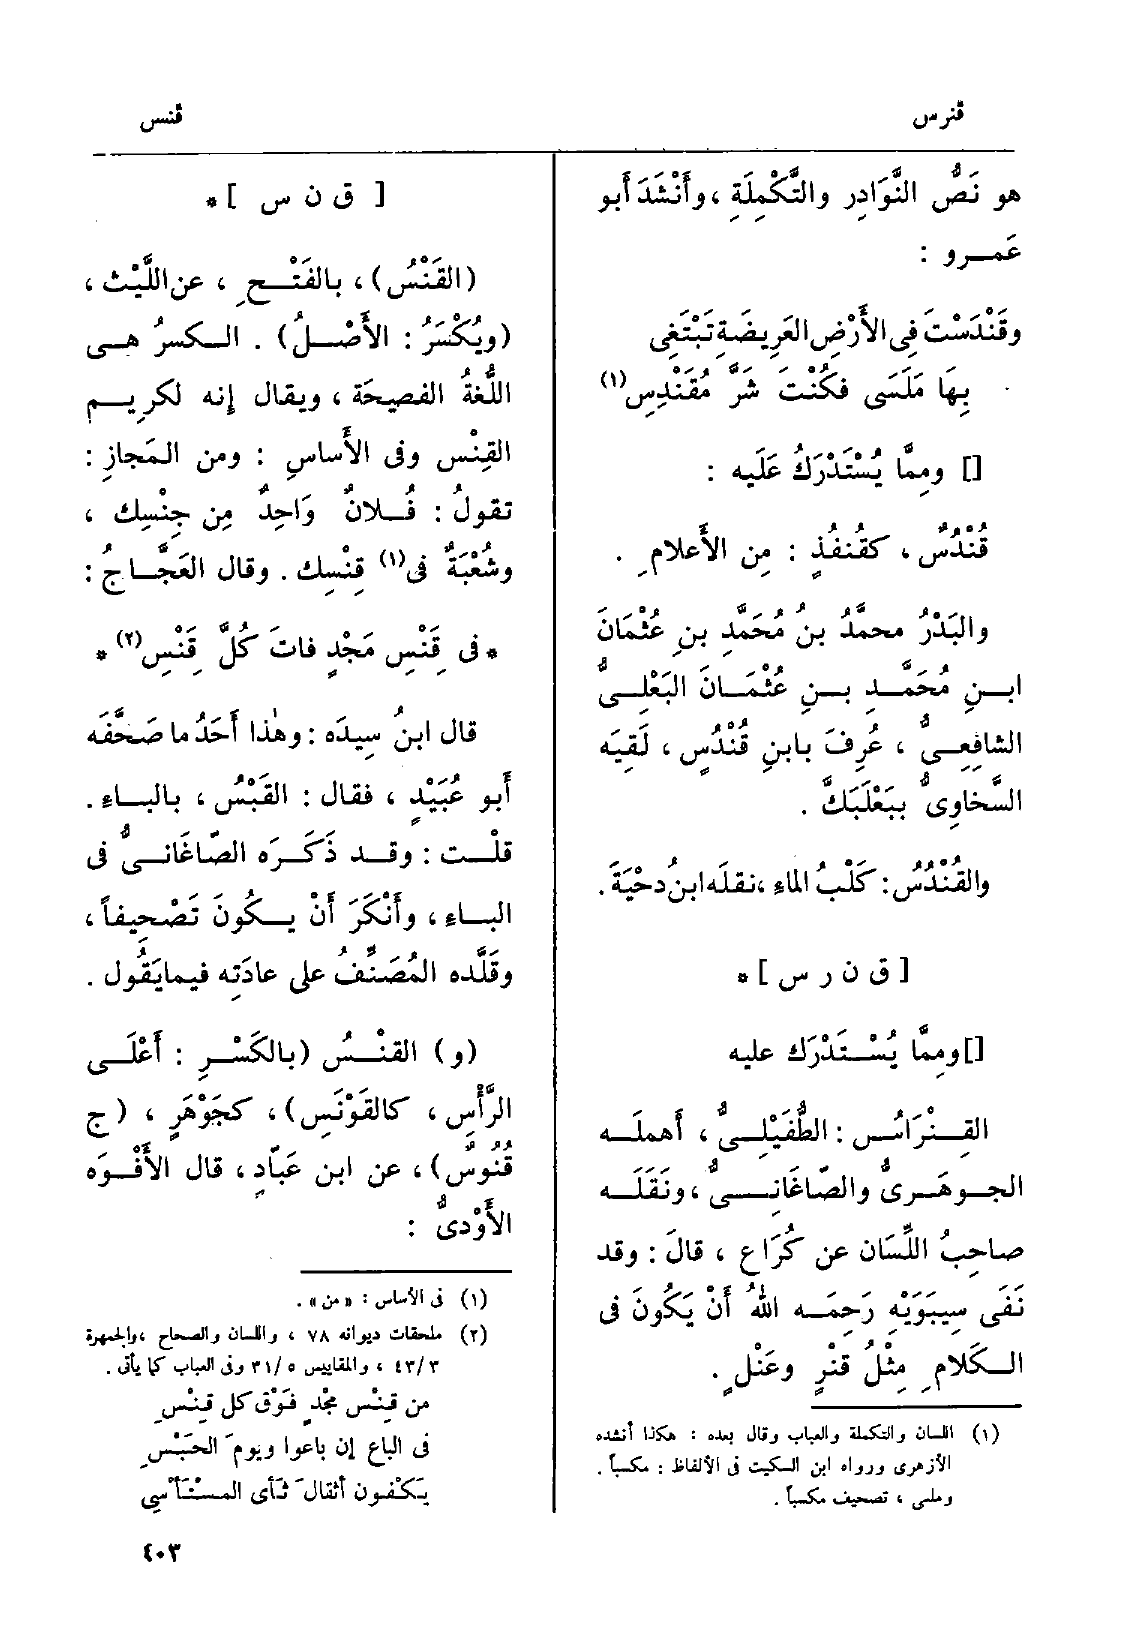 قنرس
قنس
هو نَصُّ النَّوَادِرِ والتَّكْمِلَةِ ، وأَنْشَدَ أَبو
عَمرو :
وقَنْدَسْتَ فِى الأَرْضِ العَرِيضَةِ تَبْتَغِى
بِهَا مَلَسَى فكُنْتَ شَرَّ مُقَنْدِسِ (١)
[] ومِمَّا يُسْتَدْرَكُ عَلَيه :
قُنْدُسٌ ، كقُنفُذٍ : مِن الأَعلامِ .
والبَدْرُ محمَّدُ بنُ مُحَمَّدِ بنِ عُثْمَانَ
ابنِ مُحَمَّدِ بنِ عُثْمَانَ البَعْلِىُّ
الشافِعِىُّ ، عُرِفَ بابنِ قُنْدُسٍ ، لَقِيَه
السَّخاوِىُّ ببَعْلَبَكَّ .
والقُنْدُسُ : كَلْبُ الماءِ ، نقلَه ابنُ دحْيَةَ .
[ ق ن ر س ] *
[] ومِمَّا يُسْتَدْرَك عليه
القِنْرَاسُ : الطُّفَيْلِىُّ ، أَهمله
الجوهَرِىُّ والصّاغَانِىُّ ، ونَقَلَه
صاحِبُ اللِّسَان عن كُرَاع ، قالَ : وقد
نَفَى سِيبَوَيْهِ رَحِمَه اللهُ أَنْ يَكُونَ فى
الكَلامِ مِثْلُ قنْرٍ وعَنْلٍ .
(١) اللسان والتكملة والعباب وقال بعده : هكذا أنشده
الأزهرى ورواه ابن السكيت فى الألفاظ : مكسباً .
وملسى ، تصحيف مكسباً .
[ ق ن س ] *
(القَنْسُ) ، بالفَتْحِ ، عن اللَّيْث ،
(ويُكْسَرُ : الأَصْلُ) . الكسرُ هى
اللُّغَةُ الفصيحَة ، ويقال إنه لكرِيم
القِنْس وفى الأَساسِ : ومن المَجازِ :
تقولُ : فُلانٌ وَاحِدٌ مِن جِنْسِك ،
وشُعْبَةٌ فى (١) قِنْسِك . وقال العَجَّاجُ :
* فى قِنْسِ مَجْدٍ فاتَ كُلَّ قِنْسِ (٢) *
قال ابنُ سِيدَه : وهٰذا أَحَدُ ما صَحَّفَه
أَبو عُبَيْدٍ ، فقال : القَبْس ، بالباءِ .
قلْت : وقد ذَكَرَه الصّاغَانىُّ فى
الباء ، وأَنْكَرَ أَنْ يكُونَ تَصْحِيفاً ،
وقَلَّده المُصَنِّفُ على عادَتِه فيما يَقُول .
(و) القنْسُ (بالكَسْرِ : أَعْلَى
الرَّأْسِ ، كالقَوْنَسِ) ، كجَوْهَرٍ ، (ج
قُنُوسٌ) ، عن ابن عَبّادٍ ، قال الأَفْوَه
الأَوْدِىُّ :
(١) فى الأساس : « من » .
(٢) ملحقات ديوانه ٧٨ ، واللسان والصحاح ، والجمهرة
٤٣/٣ ، والمقاييس ٣١/٥ وفى العباب كما يأتى .
من قِنْس مجْدٍ فَوْق كل قِنْسِ
فى الباع إن باعوا ويومَ الحَبْسِ
يَكْفون أثقالَ ثَأى المسْتَأسِي
٤٠٣